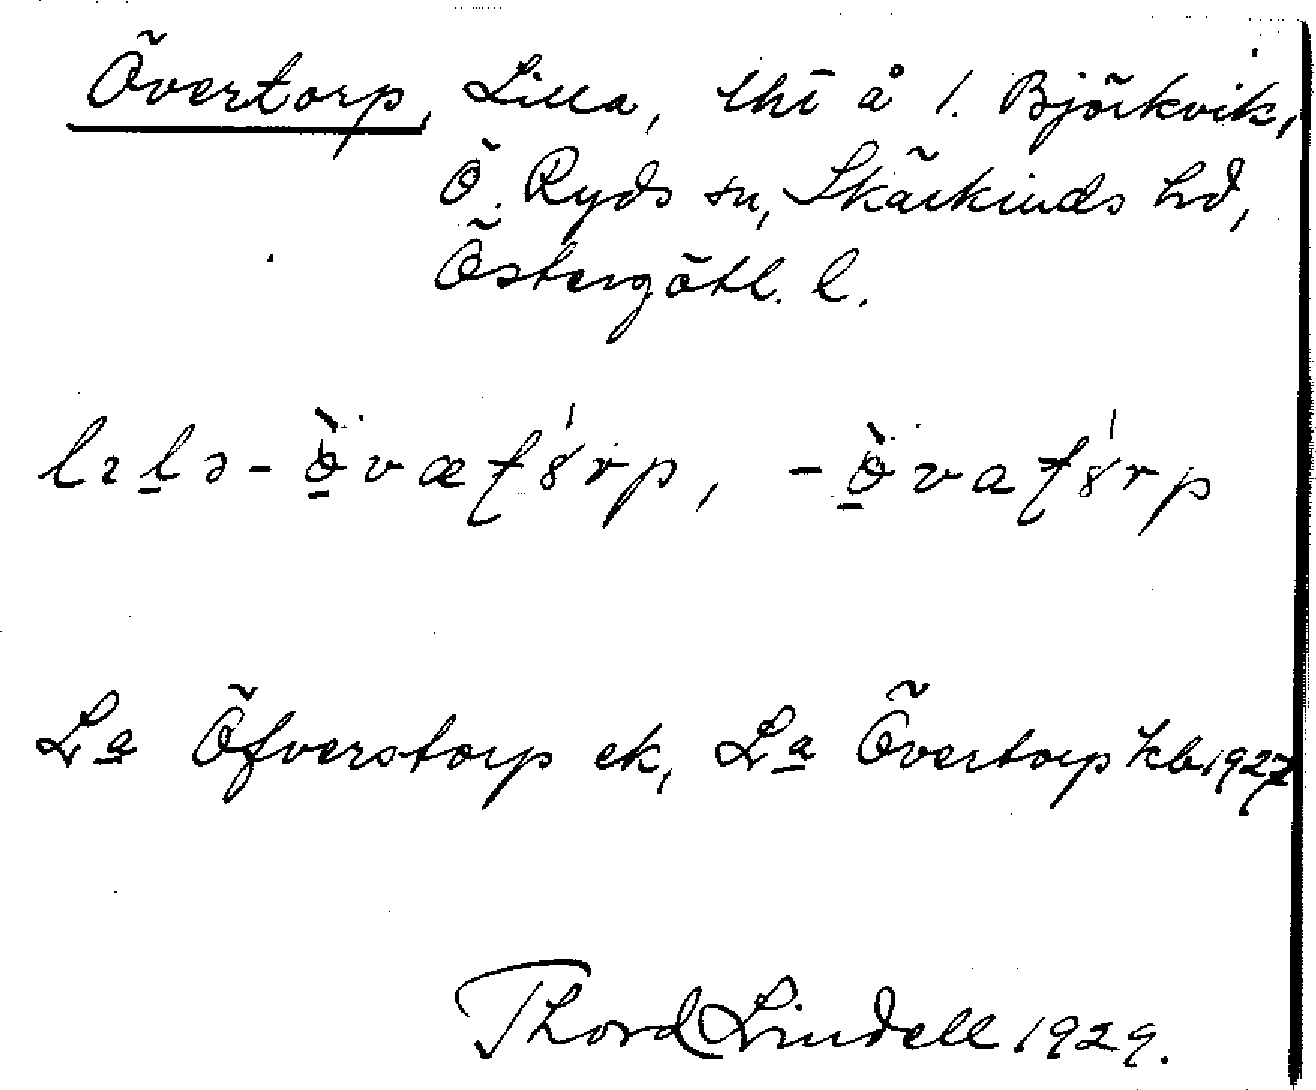 Övertorp, Lilla, lht å 1. Björkvik,
Ö. Ryds sn, Skärkinds hd,
Östergötl. l.
La Öfverstorp ek, La Övertorp kb 1927
Thord Lindell 1929.